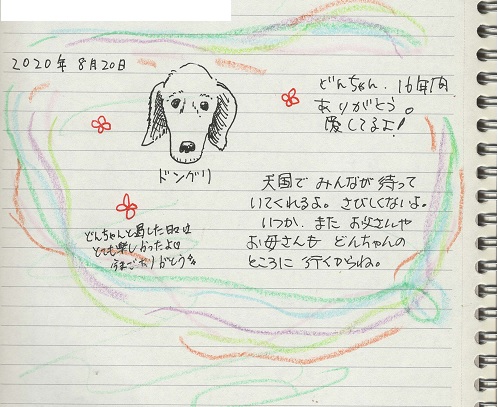 2020年8月20日
どんちゃん、16年間
ありがとう。
愛してるよ!
ドングリ
天国で みんなが 待って
いてくれるよ。さびしくないよ。
いつか、また お父さんや
お母さんも どんちゃんの
ところに 行くからね。
どんちゃんと過した日々は
とても楽しかったよ
今までありがとうね